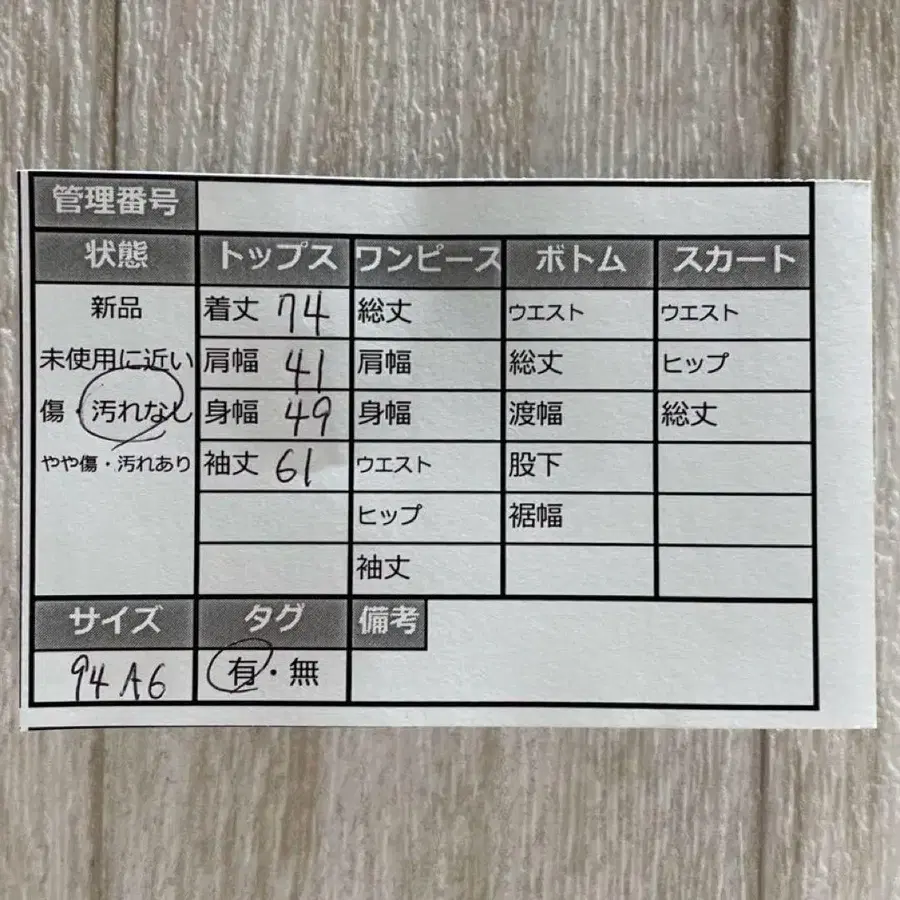 管理番号
状態 トップス ワンピース ボトム スカート
新品 着丈 74 総丈 ウエスト ウエスト
未使用に近い 肩幅 41 肩幅 総丈 ヒップ
傷・汚れなし 身幅 49 身幅 渡幅 総丈
やや傷・汚れあり 袖丈 61 ウエスト 股下
ヒップ 裾幅
袖丈
サイズ タグ 備考
94 A6 有・無